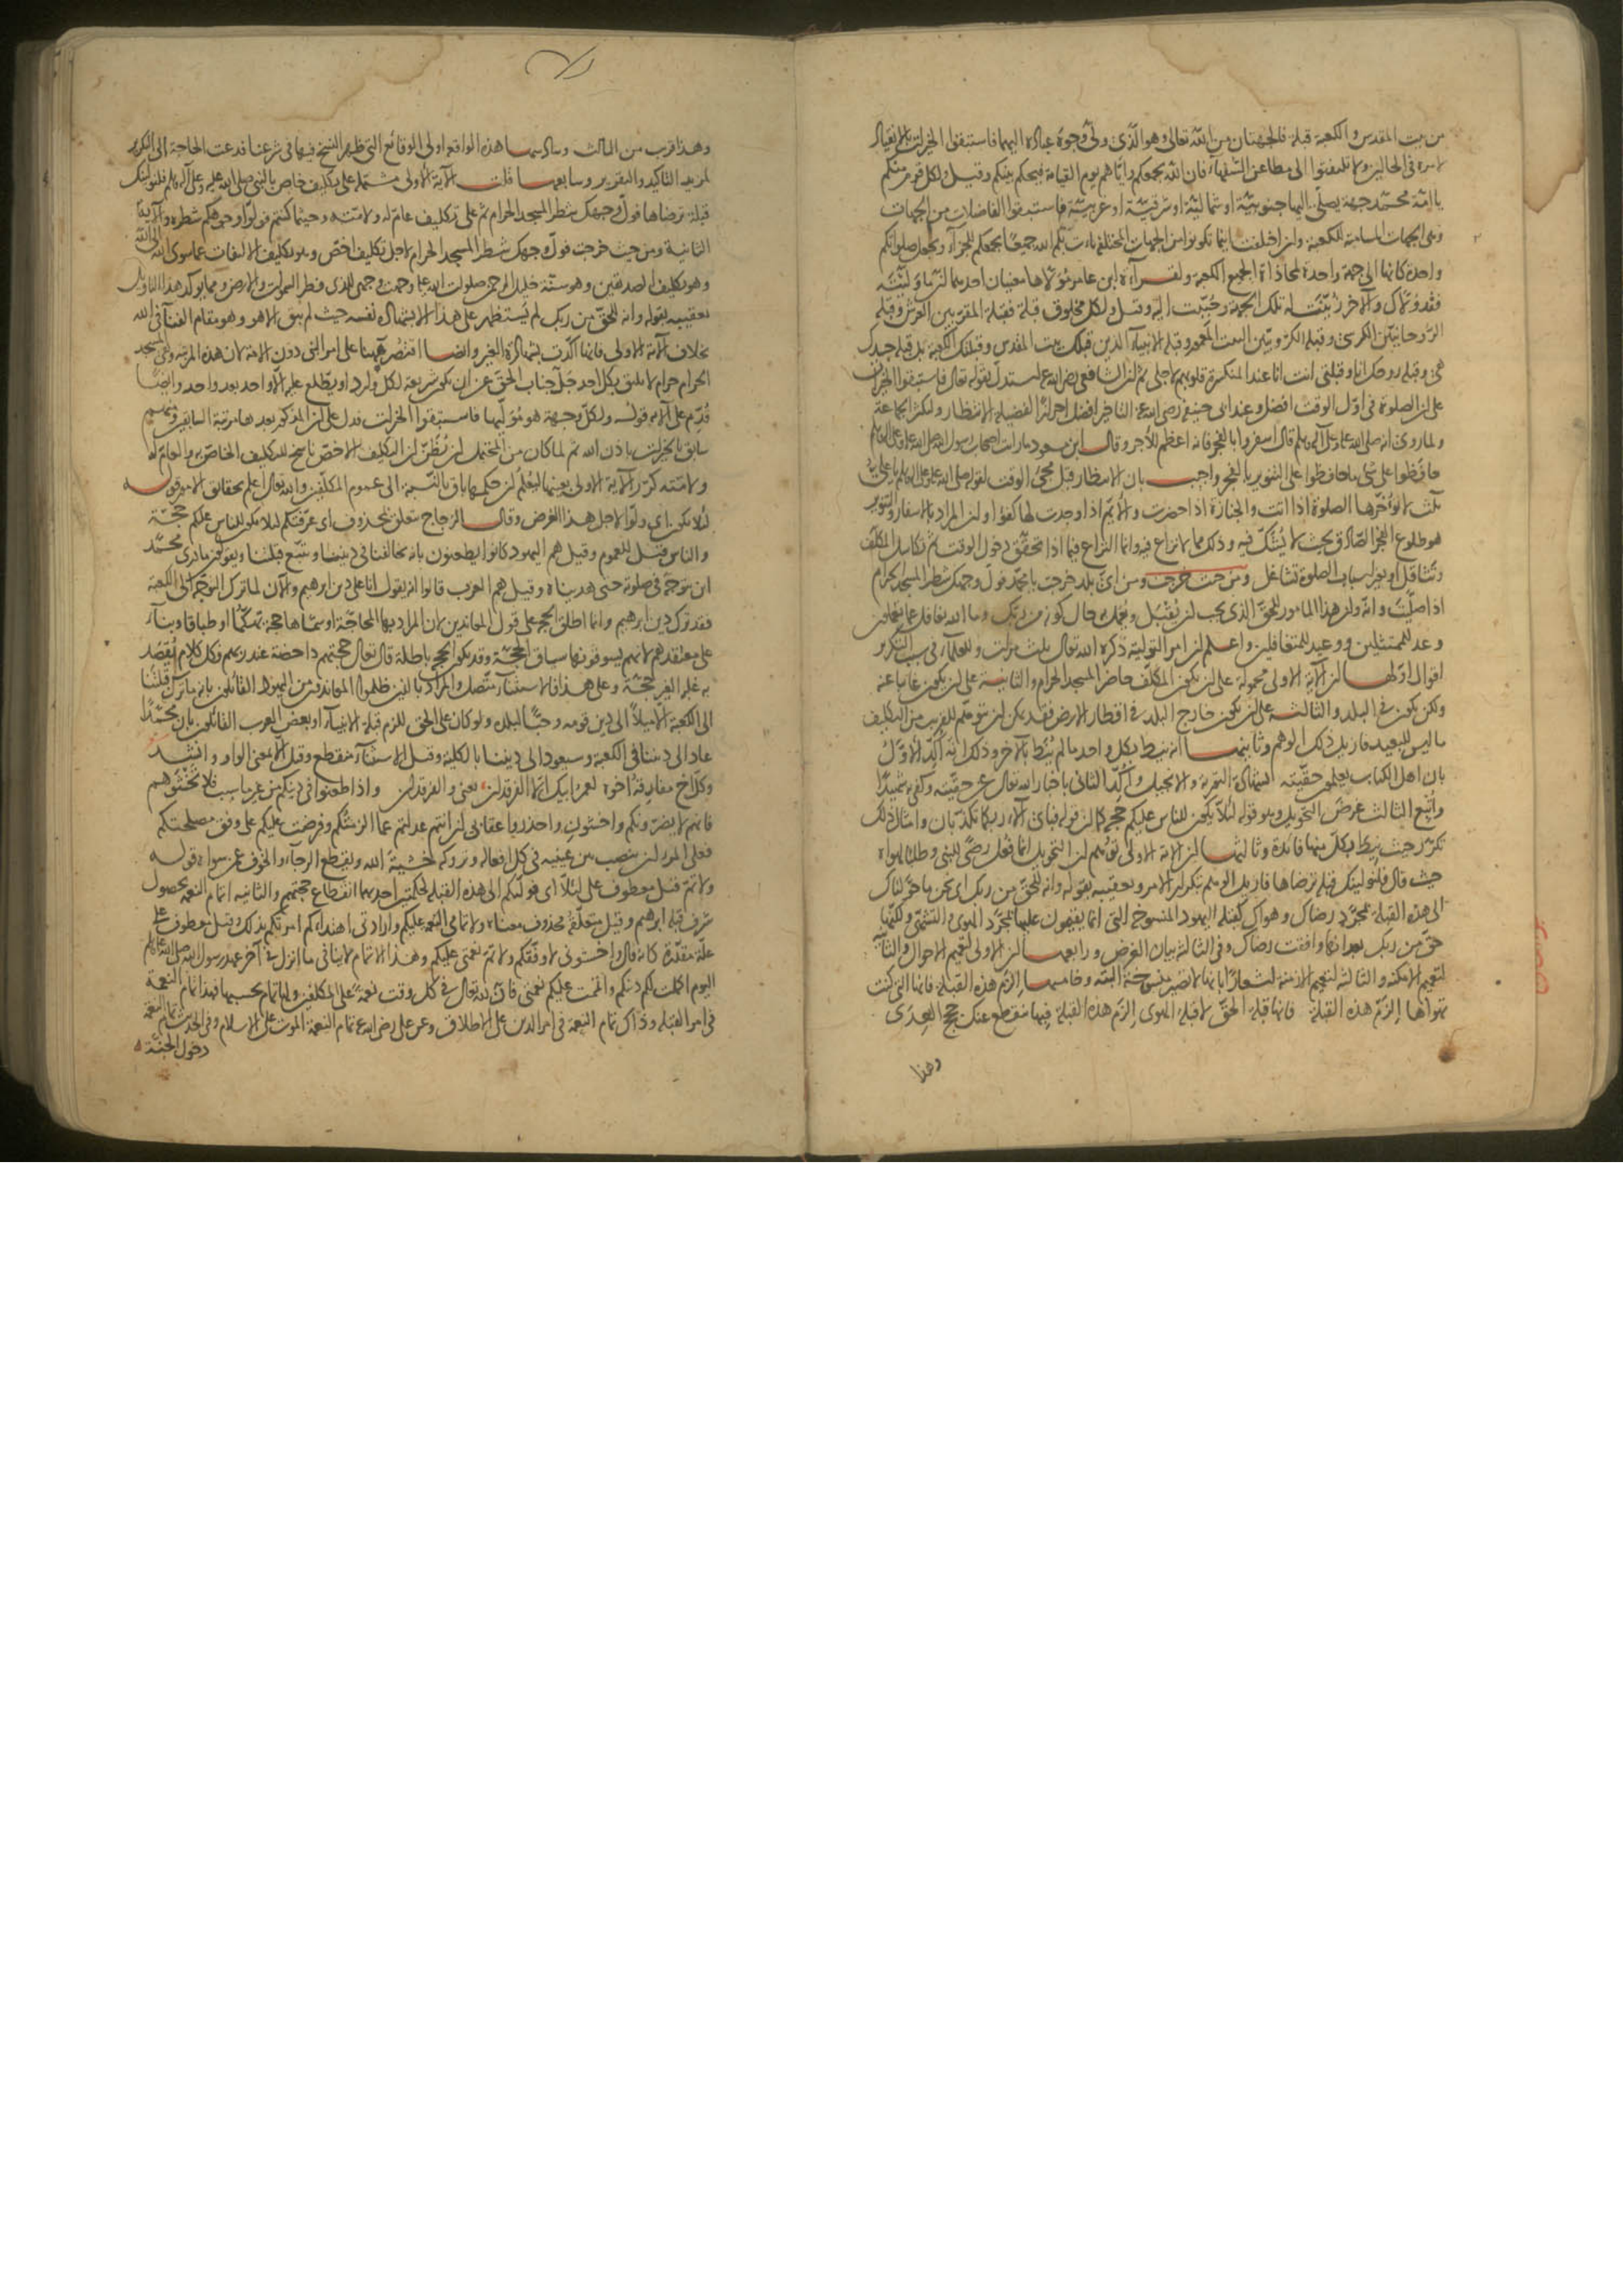 من بيت المقدس والكعبة قبلة فالجهتان من الله تعالى وهو الذى ولى وجوه عباده اليهما فاستبقوا الخيرات بالانقياد
لامره فى الحالين ولا تلتفتوا الى مطاعن السفهاء فان الله يجمعكم واياهم يوم القيامة فيحكم بينكم وقيل ولكل قوم منكم
يا امة محمد جهة يصلى اليها جنوبية او شمالية او شرقية او غربية فاستبقوا الفاضلات من الجهات
وهى الجهات المسامتة للكعبة وان اختلفت اينما تكونوا من الجهات المختلفة يأت بكم الله جميعا يجمعكم للجزاء ويجعل صلواتكم
واحدة كانها الى جهة واحدة لمحاذاة الجميع الكعبة ولقراءة ابن عامر مولاها معنيان احدهما ان ما وليته
فقد ولاك والآخر زينت له تلك الجهة وحببت اليه وقيل ولكل مخلوق قبلة فقبلة المقربين العرش وقبلة
الروحانيين الكرسى وقبلة الكروبيين البيت المعمور وقبلة الانبياء الذين قبلك بيت المقدس وقبلتك الكعبة بل قبلة جسدك
هى وقبلة روحك انا وقبلتى انت انا عند المنكسرة قلوبهم لاجلى ثم ان الشافعى رضى الله عنه استدل بقوله تعالى فاستبقوا الخيرات
على ان الصلوة فى اول الوقت افضل وعند ابى حنيفة رضى الله عنه التأخير افضل احرازا لفضيلة الانتظار ولكثرة الجماعة
ولما روى انه صلى الله عليه وعلى آله وسلم قال اسفروا بالفجر فانه اعظم للاجر وقال ابن مسعود ما رأيت اصحاب رسول الله صلى الله عليه وعلى آله وسلم
حافظوا على شئ ما حافظوا على التنوير بالفجر واجيب بان الانتظار قبل مجئ الوقت لقوله صلى الله عليه وعلى آله وسلم يا على
ثلث لا تؤخرها الصلوة اذا اتت والجنازة اذا حضرت والايم اذا وجدت لها كفوا وان المراد بالاسفار والتنوير
هو طلوع الفجر الصادق بحيث لا يشك فيه وذلك مما لا نزاع فيه وانما النزاع فيما اذا تحقق دخول الوقت ثم تكاسل المكلف
وتثاقل او بغير اسباب الصلوة تشاغل ومن حيث خرجت ومن اى بلد خرجت يا محمد فول وجهك شطر المسجد الحرام
اذا صليت وانه وان هذا المامور للحق الذى يجب ان يقبل ويعمل به حال كونه من ربك وما الله بغافل عما تعملون
وعد للممتثلين ووعيد للمتغافلين واعلم ان امر التولية ذكره الله تعالى ثلث مرات وللعلماء فى سبب التكرير
اقوال اولها ان الآية الاولى محمولة على ان يكون المكلف حاضر المسجد الحرام والثانية على ان يكون غائبا عنه
ولكن يكون فى البلد والثالثة على ان يكون خارج البلد فى اقطار الارض فقد يمكن ان يتوهم للقريب من التكليف
ما ليس للبعيد فازيل ذلك الوهم وثانيها انه نيط بكل واحد ما لم ينط بالآخر وذلك انه اكد الاول
بان اهل الكتاب يعلمون حقيته بشهادة التورية والانجيل واكد الثانى باخبار الله تعالى عن حقيته وكفى به شهيدا
واتبع الثالث غرض التحويل وهو قوله لئلا يكون للناس عليكم حجة كما ان قوله فباى آلاء ربكما تكذبان وامثال ذلك
تكرر حيث نيط بكل منها فائدة وثالثها ان الآية الاولى توهم ان التحويل انما فعل رضى للنبى وطلبا لهواه
حيث قال فلنولينك قبلة ترضاها فازيل الوهم بتكرار الامر وتعقيبه بقوله وانه للحق من ربك اى نحن ما حولناك
الى هذه القبلة بمجرد رضاك وهواك كقبلة اليهود المنسوخة التى انما يقيمون عليها بمجرد الهوى والتشهى ولكنها
حق من ربك بعد انها وافقت رضاك وفى الثالثة بيان الغرض ورابعها ان الاولى لتعميم الاحوال والثانية
لتعميم الامكنة والثالثة لتعميم الازمنة اشعارا بانها لا تصير منسوخة البتة وخامسها الزم هذه القبلة فانها التى كنت
تهواها الزم هذه القبلة فانها قبلة الحق لا قبلة الهوى الزم هذه القبلة ففيها منقطع عنك حجج العدى
وهذا
وهذا قريب من الثالث وسادسها هذه الواقعة اولى الوقائع التى ظهر النسخ فيها فى شرعنا فدعت الحاجة الى التكرير
لمزيد التاكيد والتقرير وسابعها قلت الآية الاولى مشتملة على تكليف خاص بالنبى صلى الله عليه وعلى آله وسلم فلنولينك
قبلة ترضاها فول وجهك شطر المسجد الحرام ثم على تكليف عام له ولامته وحيثما كنتم فولوا وجوهكم شطره والآية
الثانية ومن حيث خرجت فول وجهك شطر المسجد الحرام لاجل تكليف اخص وهو تكليف الالتفات عما سوى الله الى الله
وهو تكليف الصديقين وهو سنة خليل الرحمن صلوات الله عليه وجهت وجهى للذى فطر السموات والارض ومما يؤكد هذا التاويل
تعقيبه بقوله وانه للحق من ربك لم يستظهر على هذا الا بشهادة نفسه حيث لم يبق الا هو وهو مقام الفناء فى الله
بخلاف الآية الاولى فانها اكدت بشهادة الغير وايضا اقتصر ههنا على امر النبى دون الامة لان هذه المرتبة وهى المسجد
الحرام حرام لا يليق بكل احد جل جناب الحق عن ان يكون شريعة لكل وارد او يطلع عليه الا واحد بعد واحد وايضا
قدم على الآية قوله ولكل وجهة هو موليها فاستبقوا الخيرات فدل على ان المذكور بعدها مرتبة السابقين ومنهم
سابق بالخيرات باذن الله ثم لما كان من المحتمل ان يظن ان التكليف الاخص ناسخ للتكليف الخاص به والعام له
ولامته كرر الآية الاولى بعينها ليعلم ان حكمها باق بالنسبة الى عموم المكلفين والله تعالى اعلم بحقائق الامور قوله
لئلا يكون اى ولوا لاجل هذا الغرض وقال الزجاج متعلق بمحذوف اى عرفتكم لئلا يكون للناس عليكم حجة
والناس قيل للعموم وقيل هم اليهود كانوا يطعنون بانه يخالفنا فى ديننا ويتبع قبلتنا ويقولون ما درى محمد
اين يتوجه فى صلوته حتى هديناه وقيل هم العرب قالوا انه يقول انا على دين ابرهيم والآن لما ترك التوجه الى الكعبة
فقد ترك دين ابرهيم وانما اطلق الحجة على قول المعاندين لان المراد بها المحاجة او سماها حجة تهكما او طباقا او بناء
على معتقدهم لانهم يسوقونها سياق الحجة وقد تكون الحجج باطلة قال تعالى حجتهم داحضة عند ربهم وكل كلام يقصد
به غلبة الغير حجة وعلى هذا فالاستثناء متصل والمراد بالذين ظلموا المعاندون من اليهود القائلون بانه ما ترك قبلتنا
الى الكعبة الا ميلا الى دين قومه وحبا لبلده ولو كان على الحق للزم قبلة الانبياء او بعض العرب القائلون بان محمدا
عاد الى ديننا فى الكعبة وسيعود الى ديننا بالكلية وقيل الاستثناء منقطع وقيل الا بمعنى الواو وانشد
وكل اخ مفارقه اخوه لعمر ابيك الا الفرقدان يعنى والفرقدان واذا طعنوا فى دينكم من غير ما سبب فلا تخشوهم
فانهم لا يضرونكم واخشونى واحذروا عقابى ان انتم عدلتم عما الزمتكم وفرضت عليكم على وفق مصلحتكم
فعلى المرء ان ينصب بين عينيه فى كل افعاله وتروكه خشية الله ويقطع الرجاء والخوف عن سواه قوله
ولاتم قيل معطوف على لئلا اى حولتكم الى هذه القبلة لحكمتين احديهما انقطاع حجتهم والثانية اتمام النعمة بحصول
شرف قبلة ابرهيم وقيل متعلقه محذوف معناه ولاتمامى النعمة عليكم وارادتى اهتداءكم امرتكم بذلك وقيل معطوف على
علة مقدرة كانه قال واخشونى لاوفقكم ولاتم نعمتى عليكم وهذا الاتمام لا ينافى ما انزل فى آخر عهد رسول الله صلى الله عليه وسلم
اليوم اكملت لكم دينكم واتممت عليكم نعمتى فان لله تعالى فى كل وقت نعمة على المكلفين ولها تمام بحسبها فهذا تمام النعمة
فى امر القبلة وذاك تمام النعمة فى امر الدين على الاطلاق وعن على رضى الله عنه تمام النعمة الموت على الاسلام وفى الحديث تمام النعمة
دخول الجنة